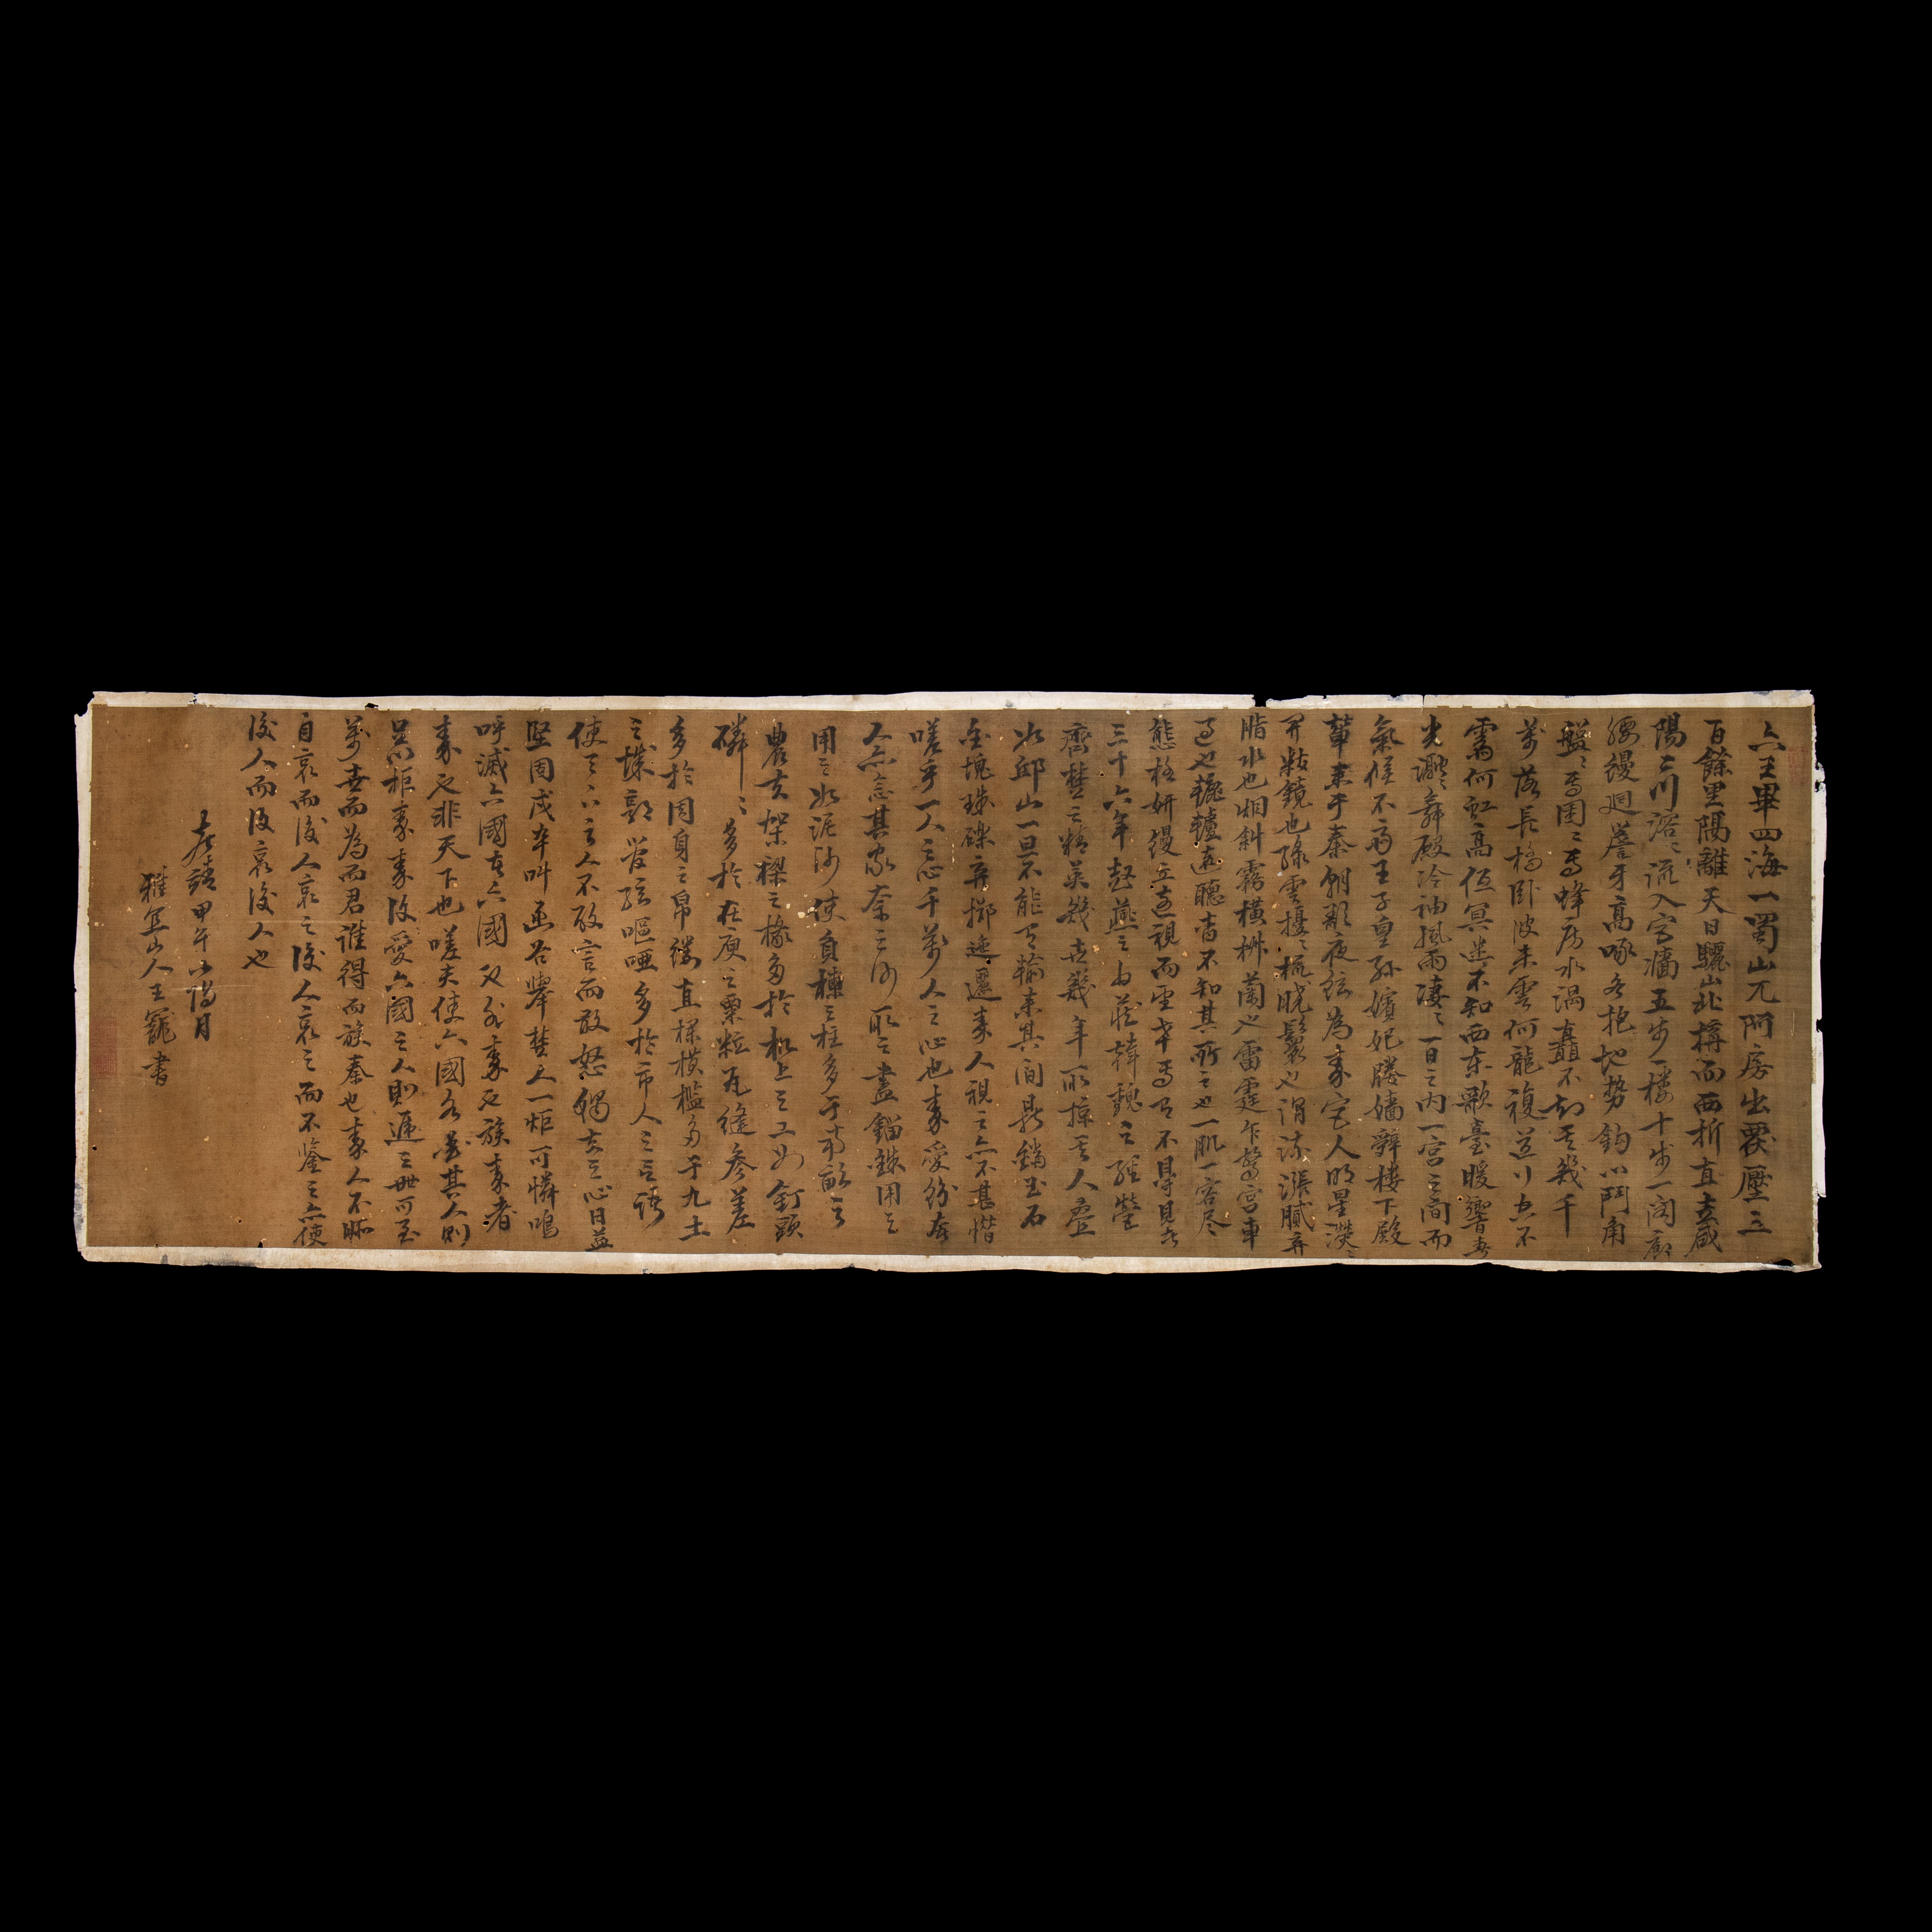 六王畢四海一蜀山兀阿房出覆壓三
百餘里隔離天日驪山北構而西折直走咸
陽二川溶〻流入宮牆五步一樓十步一閣廊
腰縵廻簷牙高啄各抱地勢鈎心鬥角
盤〻焉囷〻焉蜂房水渦矗不知其幾千
萬落長橋臥波未雲何龍複道行空不
霽何虹高低冥迷不知西東歌臺暖響春
光融〻舞殿冷袖風雨凄〻一日之內一宮之間而
氣候不齊王子皇孫嬪妃媵嬙辭樓下殿
輦來于秦朝歌夜絃為秦宮人明星熒〻
開粧鏡也綠雲擾〻梳曉鬟也渭流漲膩棄
脂水也烟斜霧橫椒蘭也雷霆乍驚宮車
過也轆轤遠聽杳不知其所之也一肌一容尽
態極妍縵立遠視而望幸焉有不得見者
三十六年趙燕之收藏韓魏之經營
齊楚之精英幾世幾年取掠其人疊
如邱山一旦不能有輸來其間鼎鐺玉石
金塊珠礫弃擲迤邐秦人視之亦不甚惜
嗟乎一人之心千萬人之心也秦愛紛奢
人亦念其家奈之何取之盡錙銖用之
用之如泥沙使負棟之柱多于南畝之
農夫架樑之椽多於机上之工女釘頭
磷〻多於在庾之粟粒瓦縫參差
多於周身之帛縷直欄橫檻多于九土
之城郭管弦嘔啞多於市人之言語
使天下之人不敢言而敢怒獨夫之心日益
堅固戍卒叫函谷舉楚人一炬可憐嗚
呼滅六國者六國也非秦也族秦者
秦也非天下也嗟夫使六國各愛其人則
足以拒秦秦復愛六國之人則遞三世可至
萬世而為而君誰得而族秦也秦人不暇
自哀而後人哀之後人哀之而不鑒之亦使
後人而復哀後人也
嘉靖甲午小陽月
雅宜山人王寵書